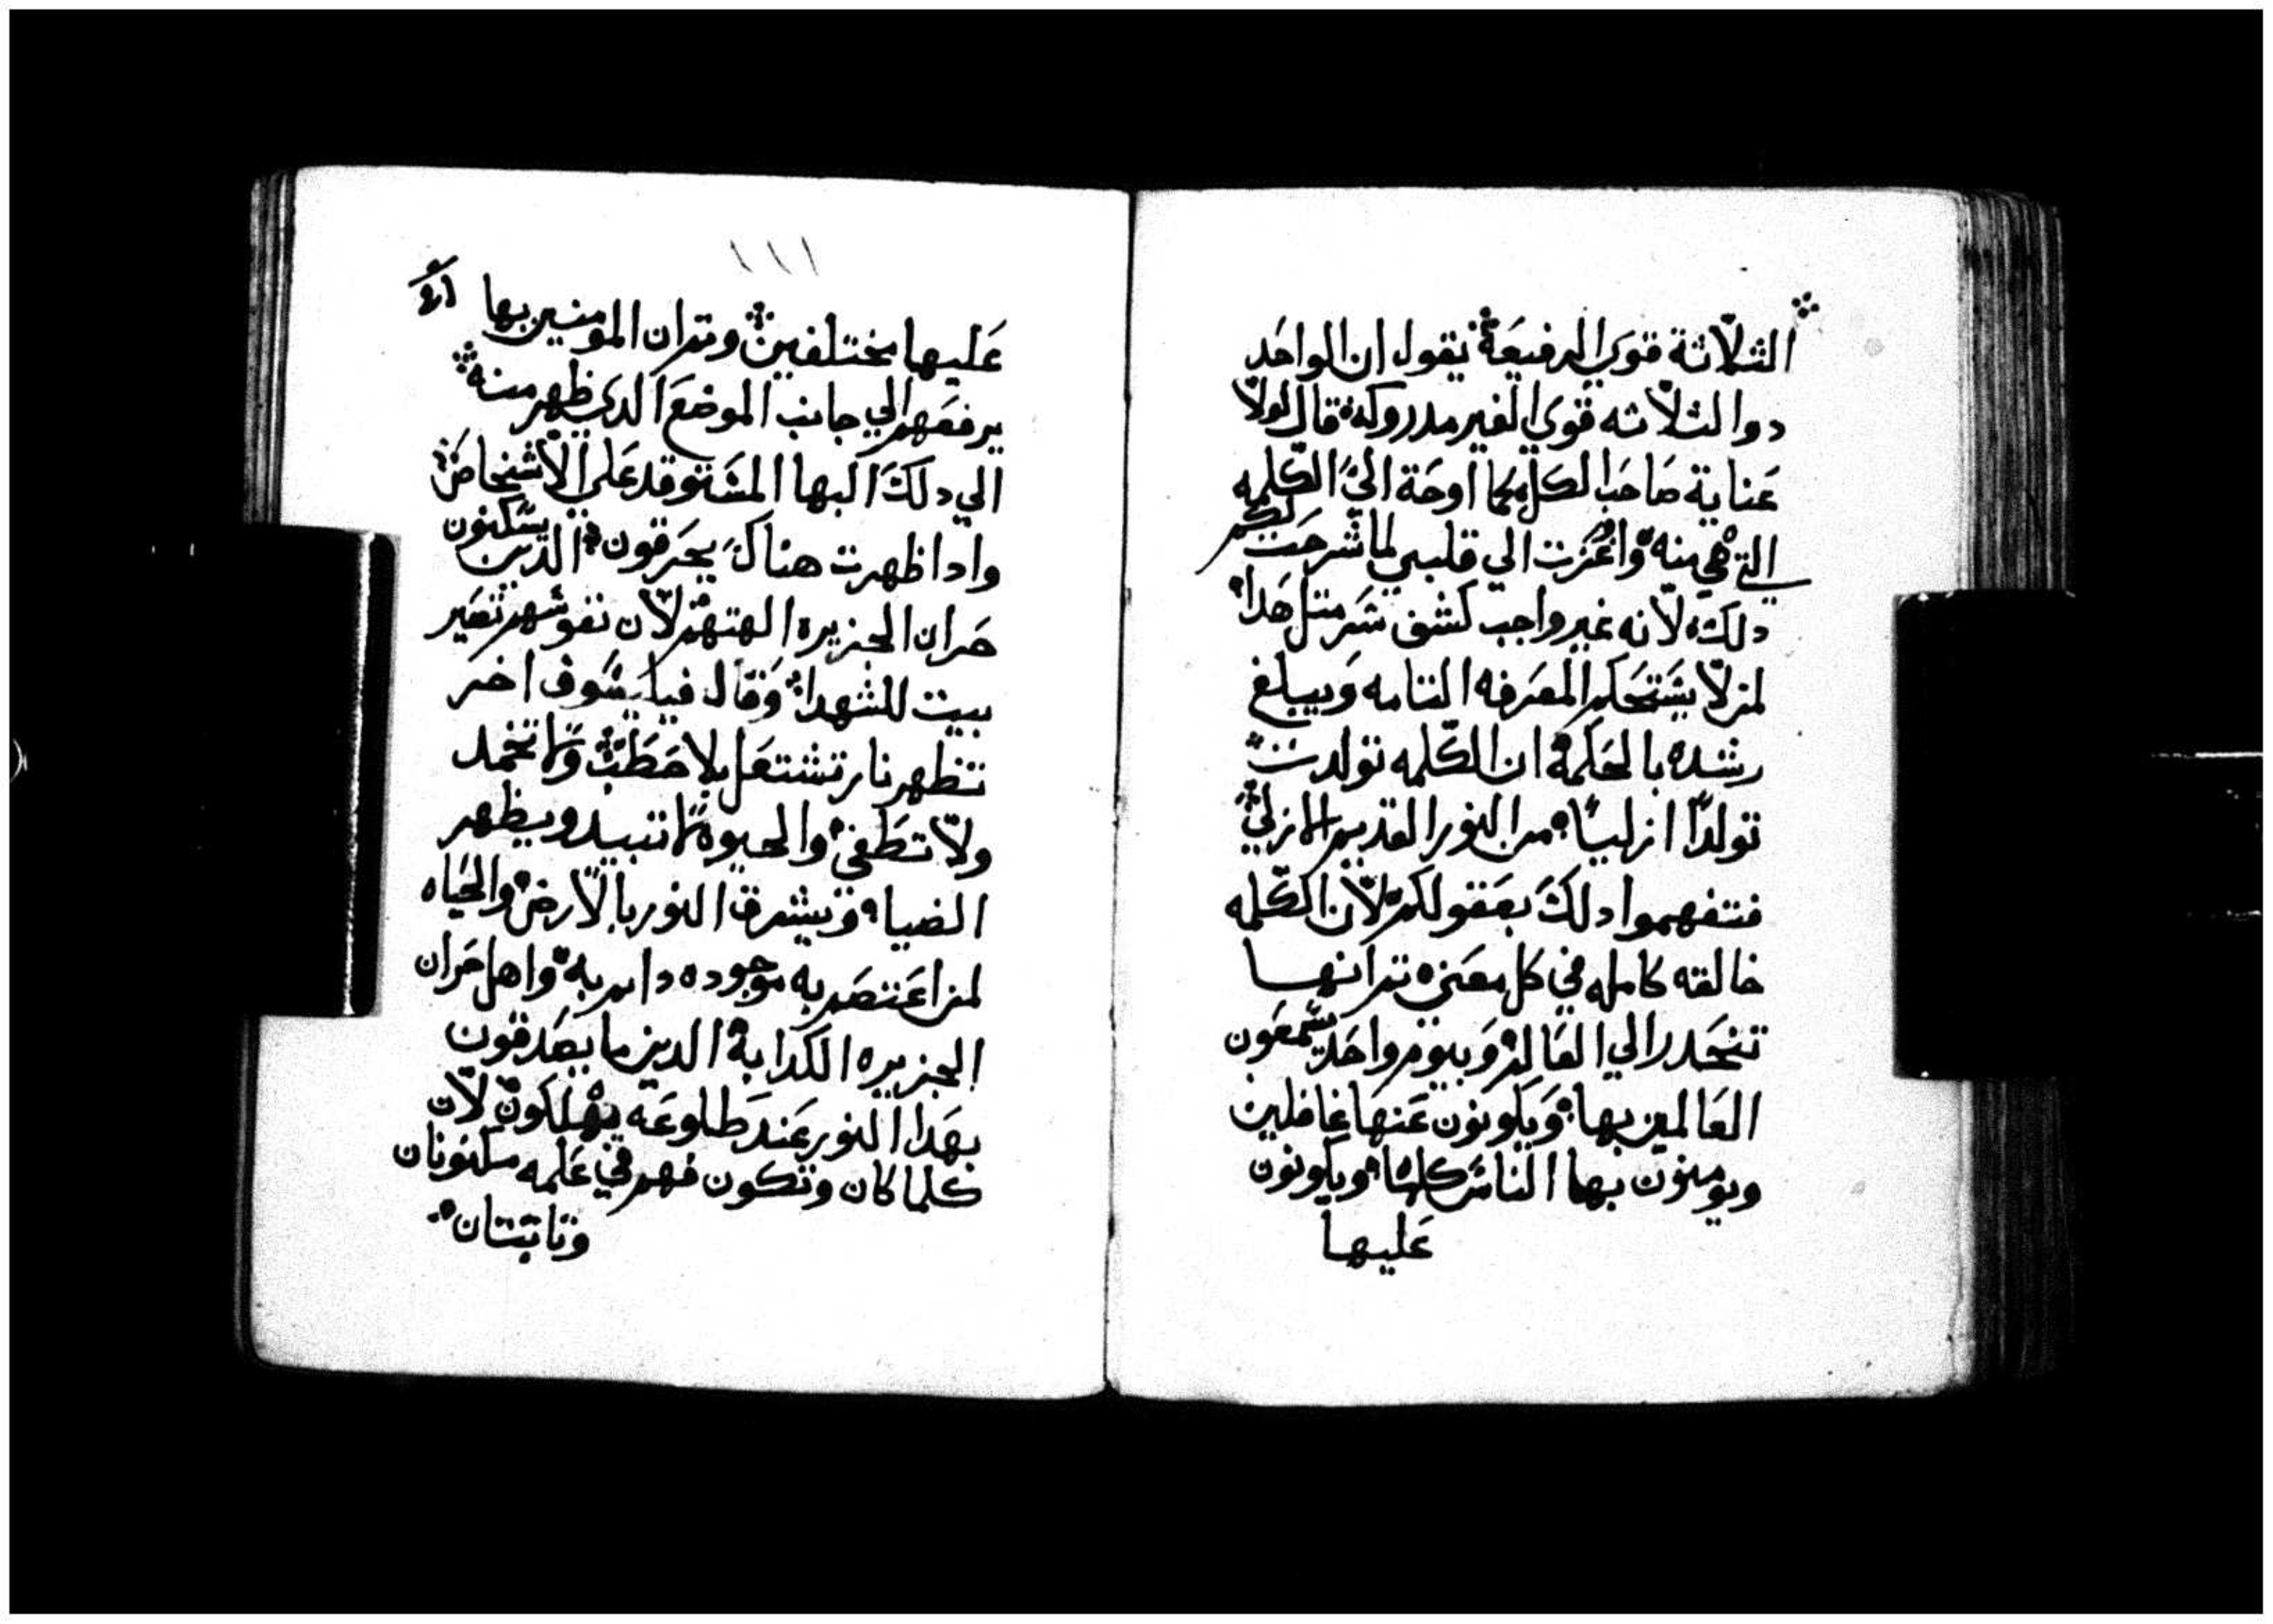 الثلاثة قوي الرفيعة نقول ان الواحد
دوا الثلاثه قوي الغير مدروكه قال لولا
عناية صاحب الكل بما اوحة الي الكلمه
التي هي منه وانحزت الي قلبي لما شرحت لكم
دلك لانه غير واجب كشف سر مثل هدا
لمن لا يستحكم المعرفه التامه ويبلغ
رشده بالحكمة ان الكلمه تولدت
تولدًا ازليًا من النور القديم الازلي
فتفهموا دلك بعقولكم لان الكلمه
خالقه كامله في كل معني نترا انها
تنحدر الي العالم وبيوم واحد يسمعون
العالمين بها ويكونون عنها غافلين
ويومنون بها الناس كلها ويكونون
عليها
١١١
عليها مختلفين ونتران المومنين بها
يرفعهم الي جانب الموضع الدي ظهر منه
الي دلك البها المستوقد علي الاشخاص
وادا ظهرت هناك يحرقون الدين يسكنون
حران الجزيره الهتهم لان نفوسهم تصير
بيت للشهدا وقال فيلسوف اخر
تظهر نار تشتعل بلا حطب ولا تخمد
ولا تطفي والحيوه لا تبيد ويظهر
الضيا ويشرق النور بالارض والحياه
لمن اعتصر به موجوده دايمه واهل حران
الجزيره الكدابة الدين ما يصدقون
بهدا النور عند طلوعه يهلكون لان
كلما كان وتكون فهم في علمه مكنونان
وتابتتان